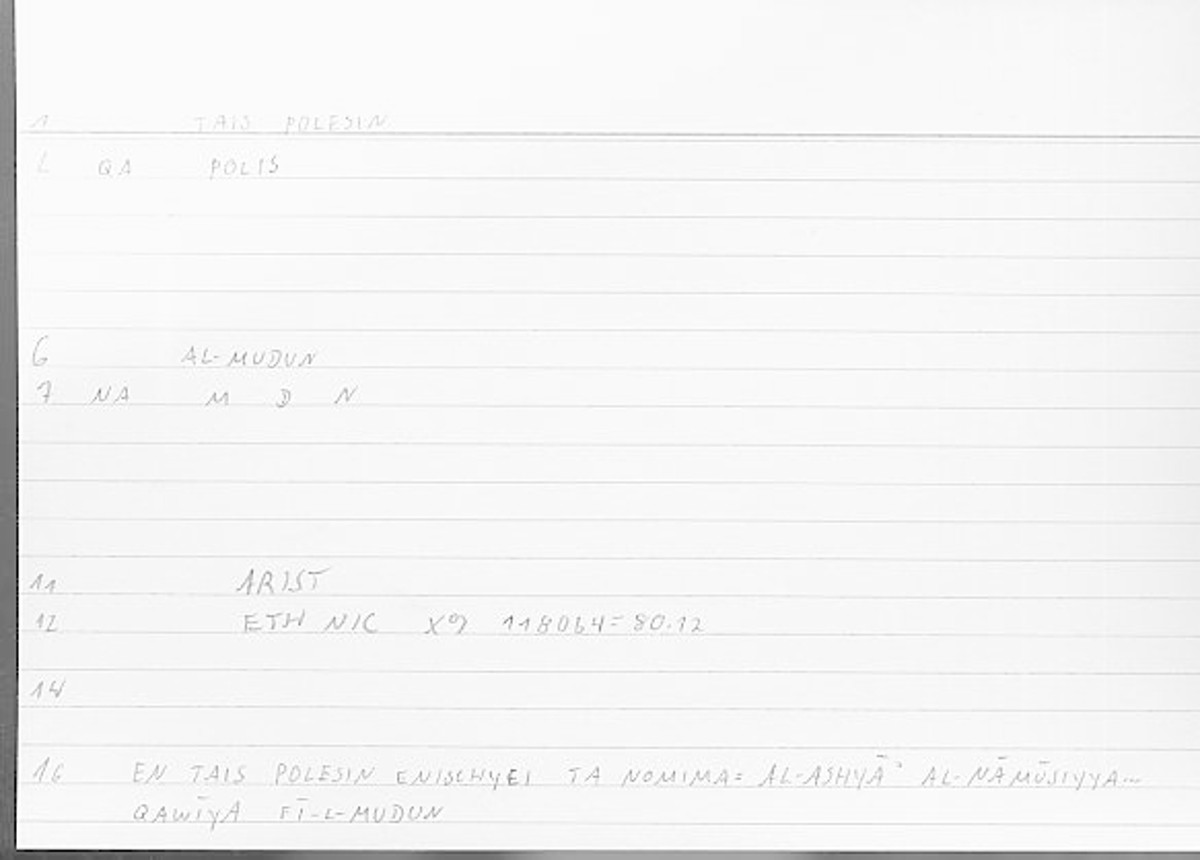 1 TAIS POLESIN
2 QA POLIS
6 AL-MUDUN
7 NA M D N
11 ARIST
12 ETH NIC X9 1180b4= 80.12
14
16 EN TAIS POLESIN ENISCHYEI TA NOMIMA= AL-ASHYĀʾ AL-NĀMŪSIYYA...
QAWĪYA FĪ-L-MUDUN